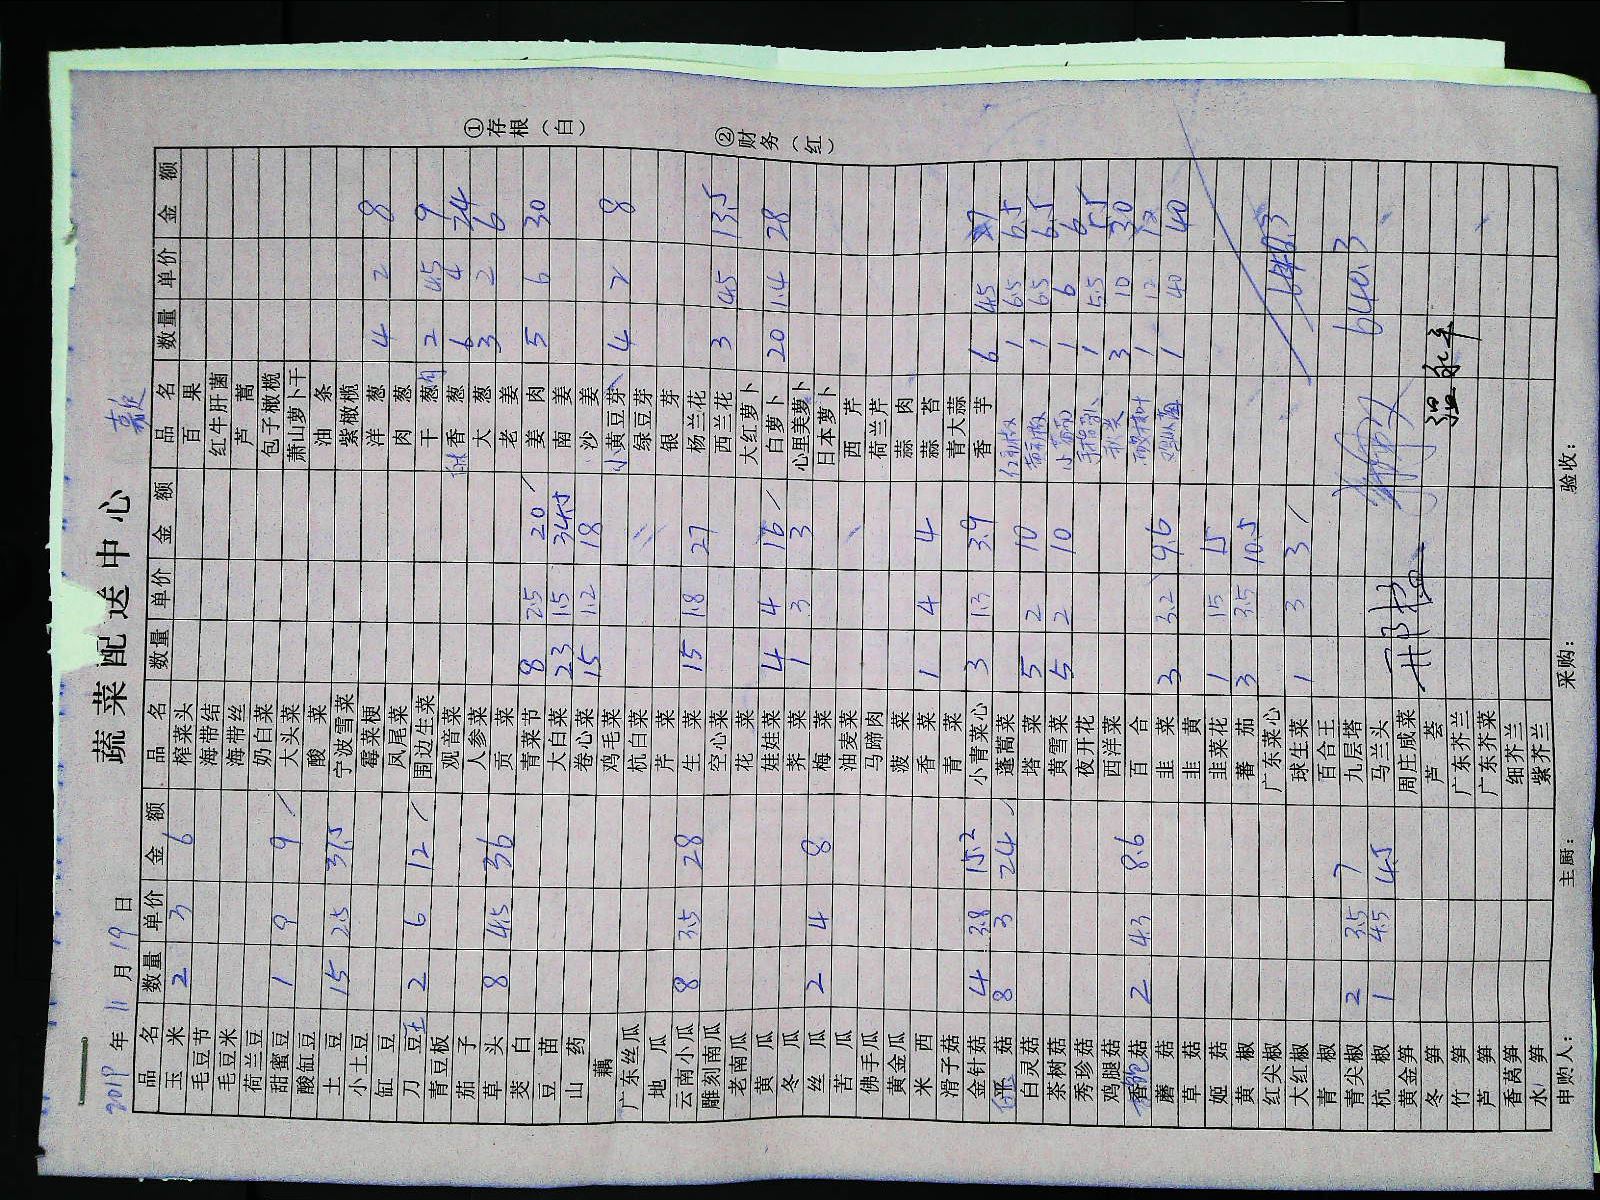 蔬菜配送中心
2019年 11月 19日
①存根(白)
②财务(红)
品名 数量 单价 金额 品名 数量 单价 金额 品名 数量 单价 金额
玉米 2 3 6 榨菜头 百果
毛豆节 海带结 红牛肝菌
毛豆米 海带丝 芦蒿
荷兰豆 奶白菜 包子橄榄
甜蜜豆 1 9 9 大头菜 萧山萝卜干
酸缸豆 酸菜 油条
土豆 15 2.5 37.5 宁波雪菜 紫橄榄
小土豆 霉菜梗 洋葱 4 2 8
缸豆 凤尾菜 肉葱
刀豆 2 6 12 围边生菜 干葱肉 2 4.5 9
青豆板 观音菜 香葱 6 4 24
茄子 人参菜 大葱 3 2 6
草头 8 4.5 36 贡菜 老姜
茭白 青菜节 8 2.5 20 姜肉 5 6 30
豆苗 大白菜 23 1.5 34.5 南姜
山药 卷心菜 15 1.2 18 沙姜
藕 鸡毛菜 小黄豆芽 4 2 8
广东丝瓜 杭白菜 绿豆芽
地瓜 芹菜 银芽
云南小瓜 8 3.5 28 生菜 15 1.8 27 杨兰花
雕刻南瓜 空心菜 西兰花 3 4.5 13.5
老南瓜 花菜 大红萝卜
黄瓜 娃娃菜 4 4 16 白萝卜 20 1.4 28
冬瓜 荠菜 1 3 3 心里美萝卜
丝瓜 2 4 8 梅菜 日本萝卜
苦瓜 油麦菜 西芹
佛手瓜 马蹄肉 荷兰芹
黄金瓜 菠菜 蒜肉
米西 香菜 1 4 4 蒜苔
滑子菇 青菜 青大蒜
金针菇 4 3.8 15.2 小青菜心 3 1.3 3.9 香芋 6 4.5 27
平菇 8 3 24 蓬蒿菜 红椒 1 6.5 6.5
白灵菇 塔菜 5 2 10 黄椒 1 6.5 6.5
茶树菇 黄雪菜 5 2 10 1 6 6
秀珍菇 夜开花 1 5.5 5.5
鸡腿菇 西洋菜 3 10 30
香菇 2 4.3 8.6 百合 1 12 12
蘑菇 韭菜 3 3.2 9.6 1 40 40
草菇 韭黄
姬菇 韭菜花 1 15 15
黄椒 蕃茄 3 3.5 10.5
红尖椒 广东菜心
大红椒 球生菜 1 3 3
青椒 百合王
青尖椒 2 3.5 7 九层塔 640.3
杭椒 1 4.5 4.5 马兰头
黄金笋 周庄咸菜
冬笋 芦荟
竹笋 广东芥兰
芦笋 广东芥菜
香莴笋 细芥兰
水笋 紫芥兰
申购人: 主厨: 采购: 验收: